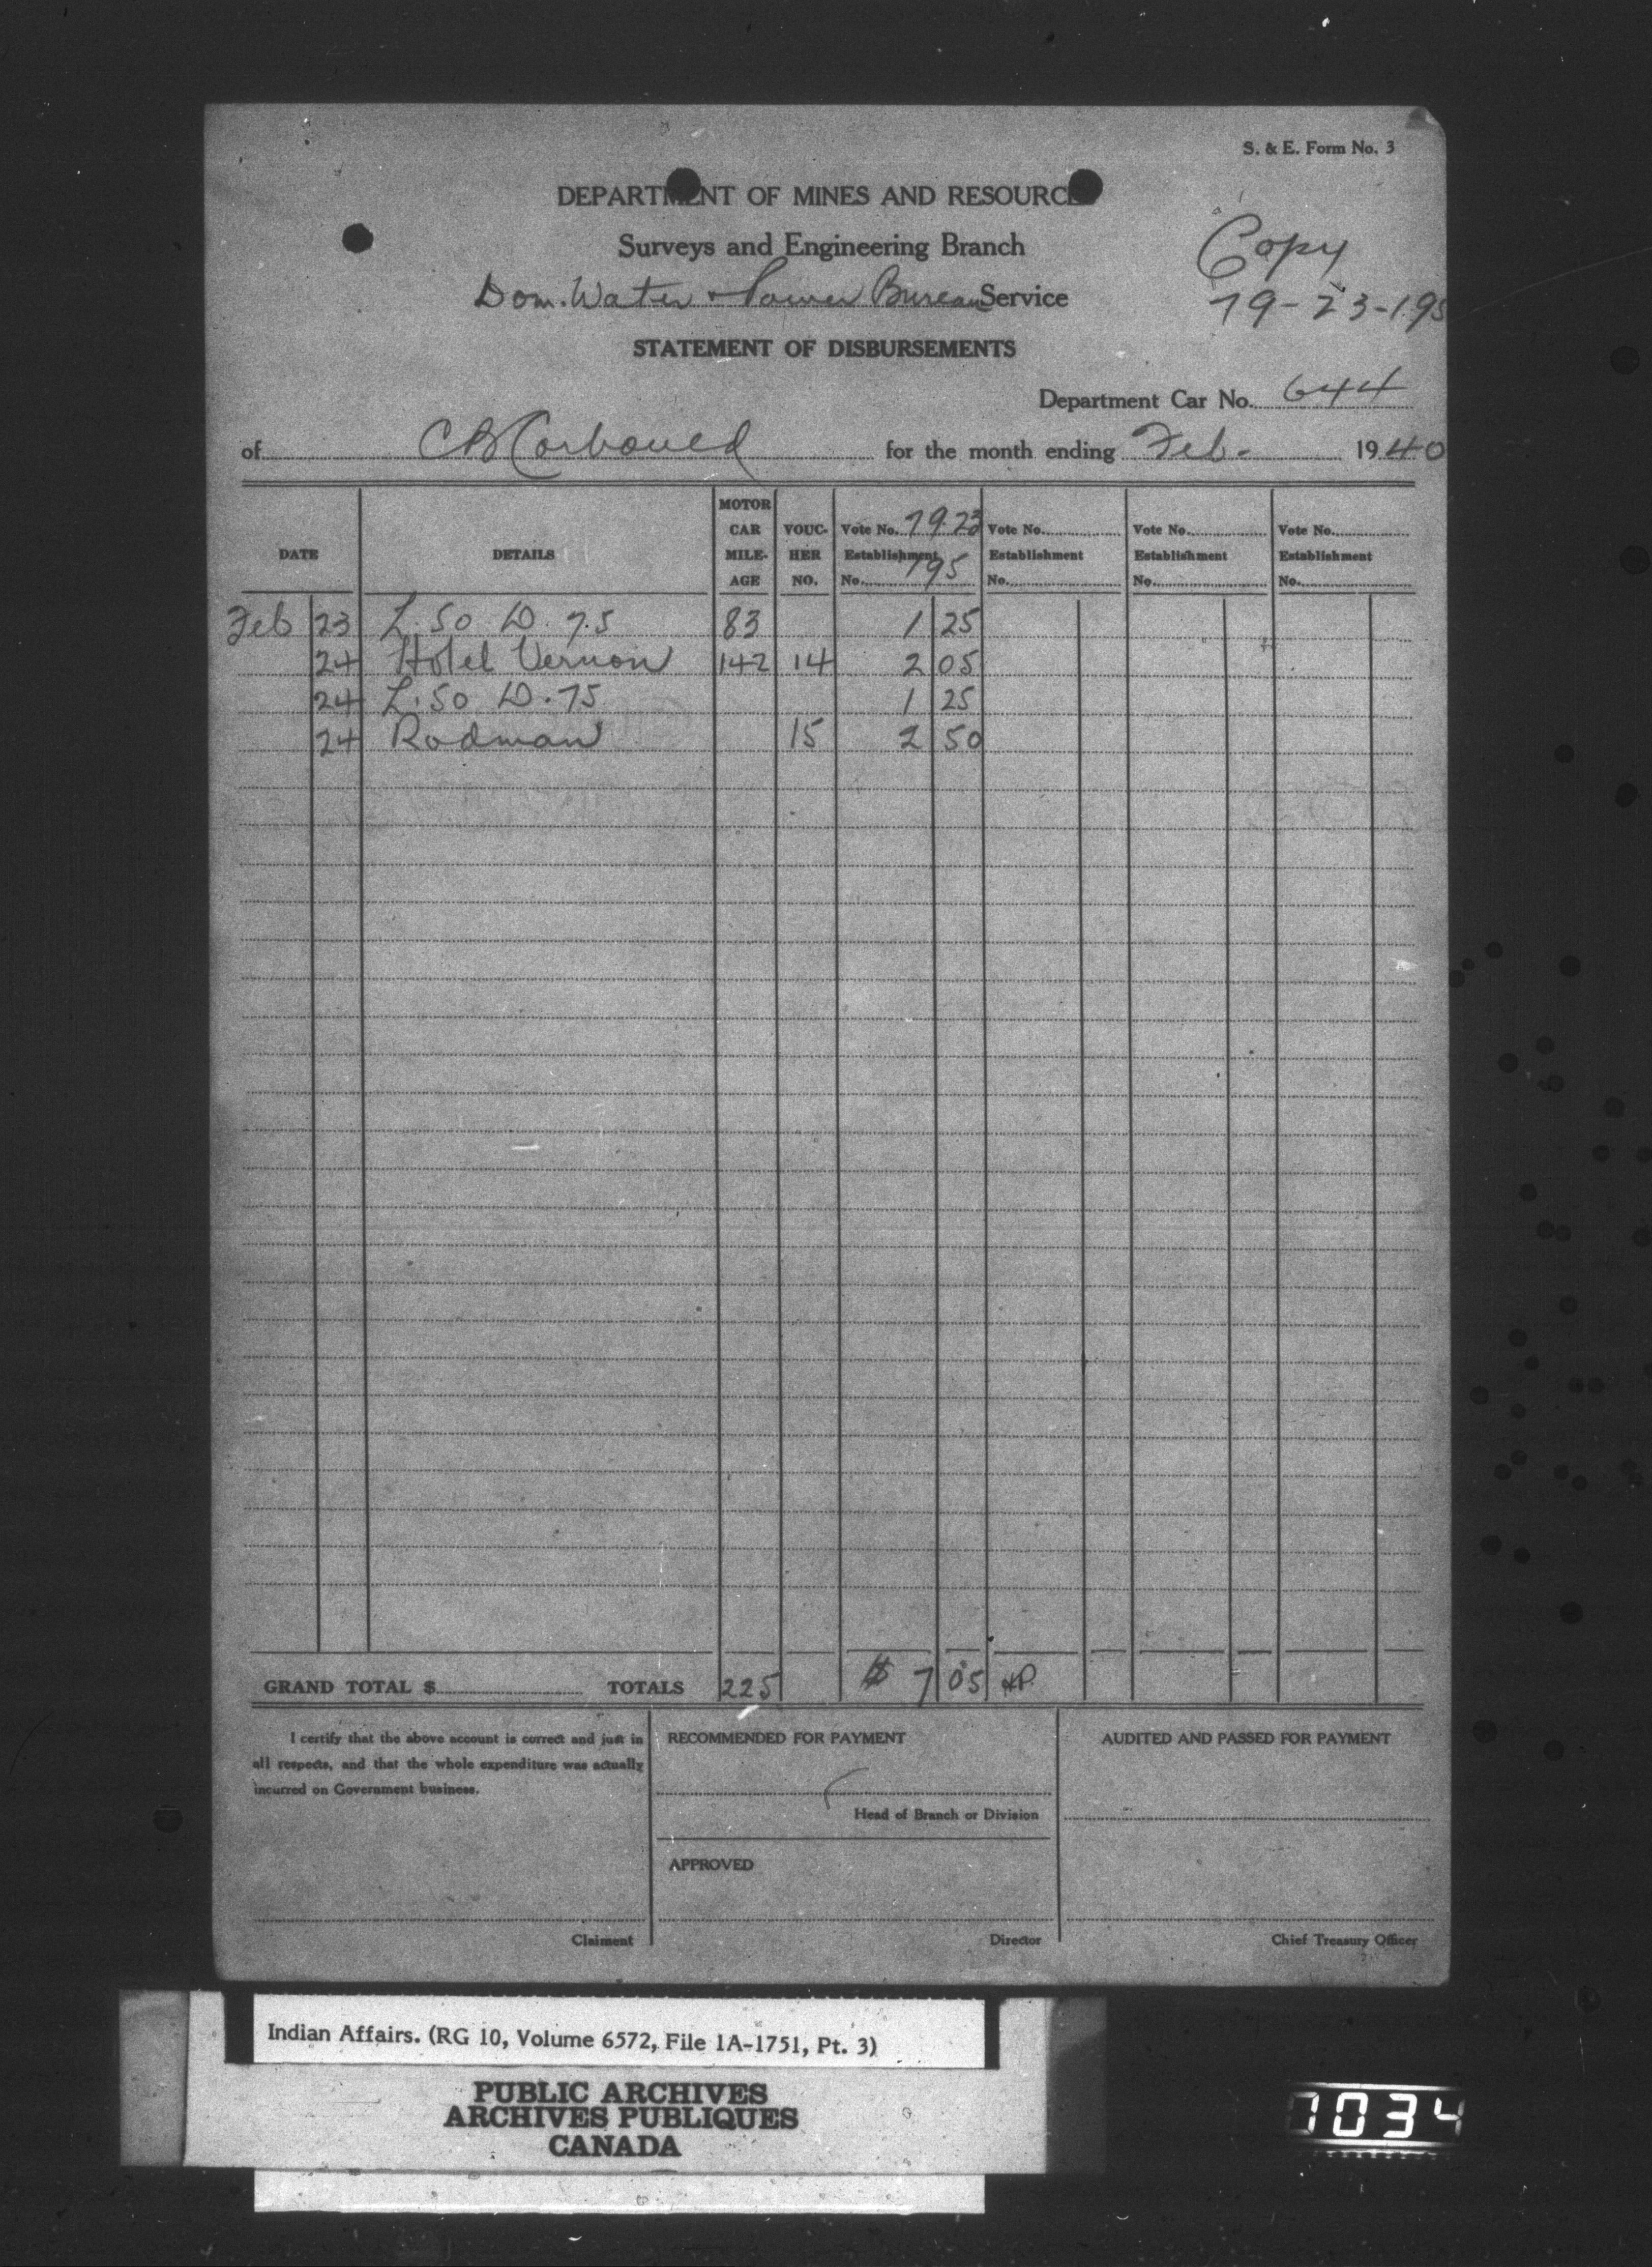 S. & E. Form No. 3
DEPARTMENT OF MINES AND RESOURCES
Surveys and Engineering Branch
Copy
Dom. Water & Power Bureau Service
79-23-195
STATEMENT OF DISBURSEMENTS
Department Car No. 644
of for the month ending Feb. 1940
DATE DETAILS MOTOR CAR MILE-AGE VOUC-HER NO. Vote No. 79.23 Establishment No. 195 Vote No. Establishment No. Vote No. Establishment No. Vote No. Establishment No.
Feb 23 L. 50 D. 75 83 1 25
24 Hotel Vernon 142 14 2 05
24 L. 50 D. 75 1 25
24 Rodman 15 2 50
GRAND TOTAL $ TOTALS 225 $ 7 05
I certify that the above account is correct and just in
all respects, and that the whole expenditure was actually
incurred on Government business.
Claiment
RECOMMENDED FOR PAYMENT
Head of Branch or Division
APPROVED
Director
AUDITED AND PASSED FOR PAYMENT
Chief Treasury Officer
Indian Affairs. (RG 10, Volume 6572, File 1A-1751, Pt. 3)
PUBLIC ARCHIVES
ARCHIVES PUBLIQUES
CANADA
1034